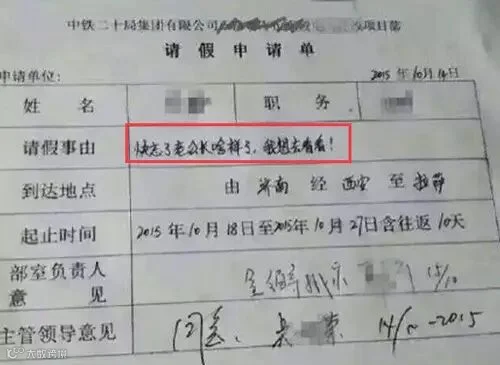 中铁二十局集团有限公司 项目部
请假申请单
申请单位: 2015年10月14日
姓名 职务
请假事由 快忘了老公长啥样了,我想去看看!
到达地点 由 济南 经 西安 至 拉萨
起止时间 2015年10月18日至2015年10月27日含往返10天
部室负责人 15/10
意见
主管领导意见 同意、 14/10-2015
大数跨境